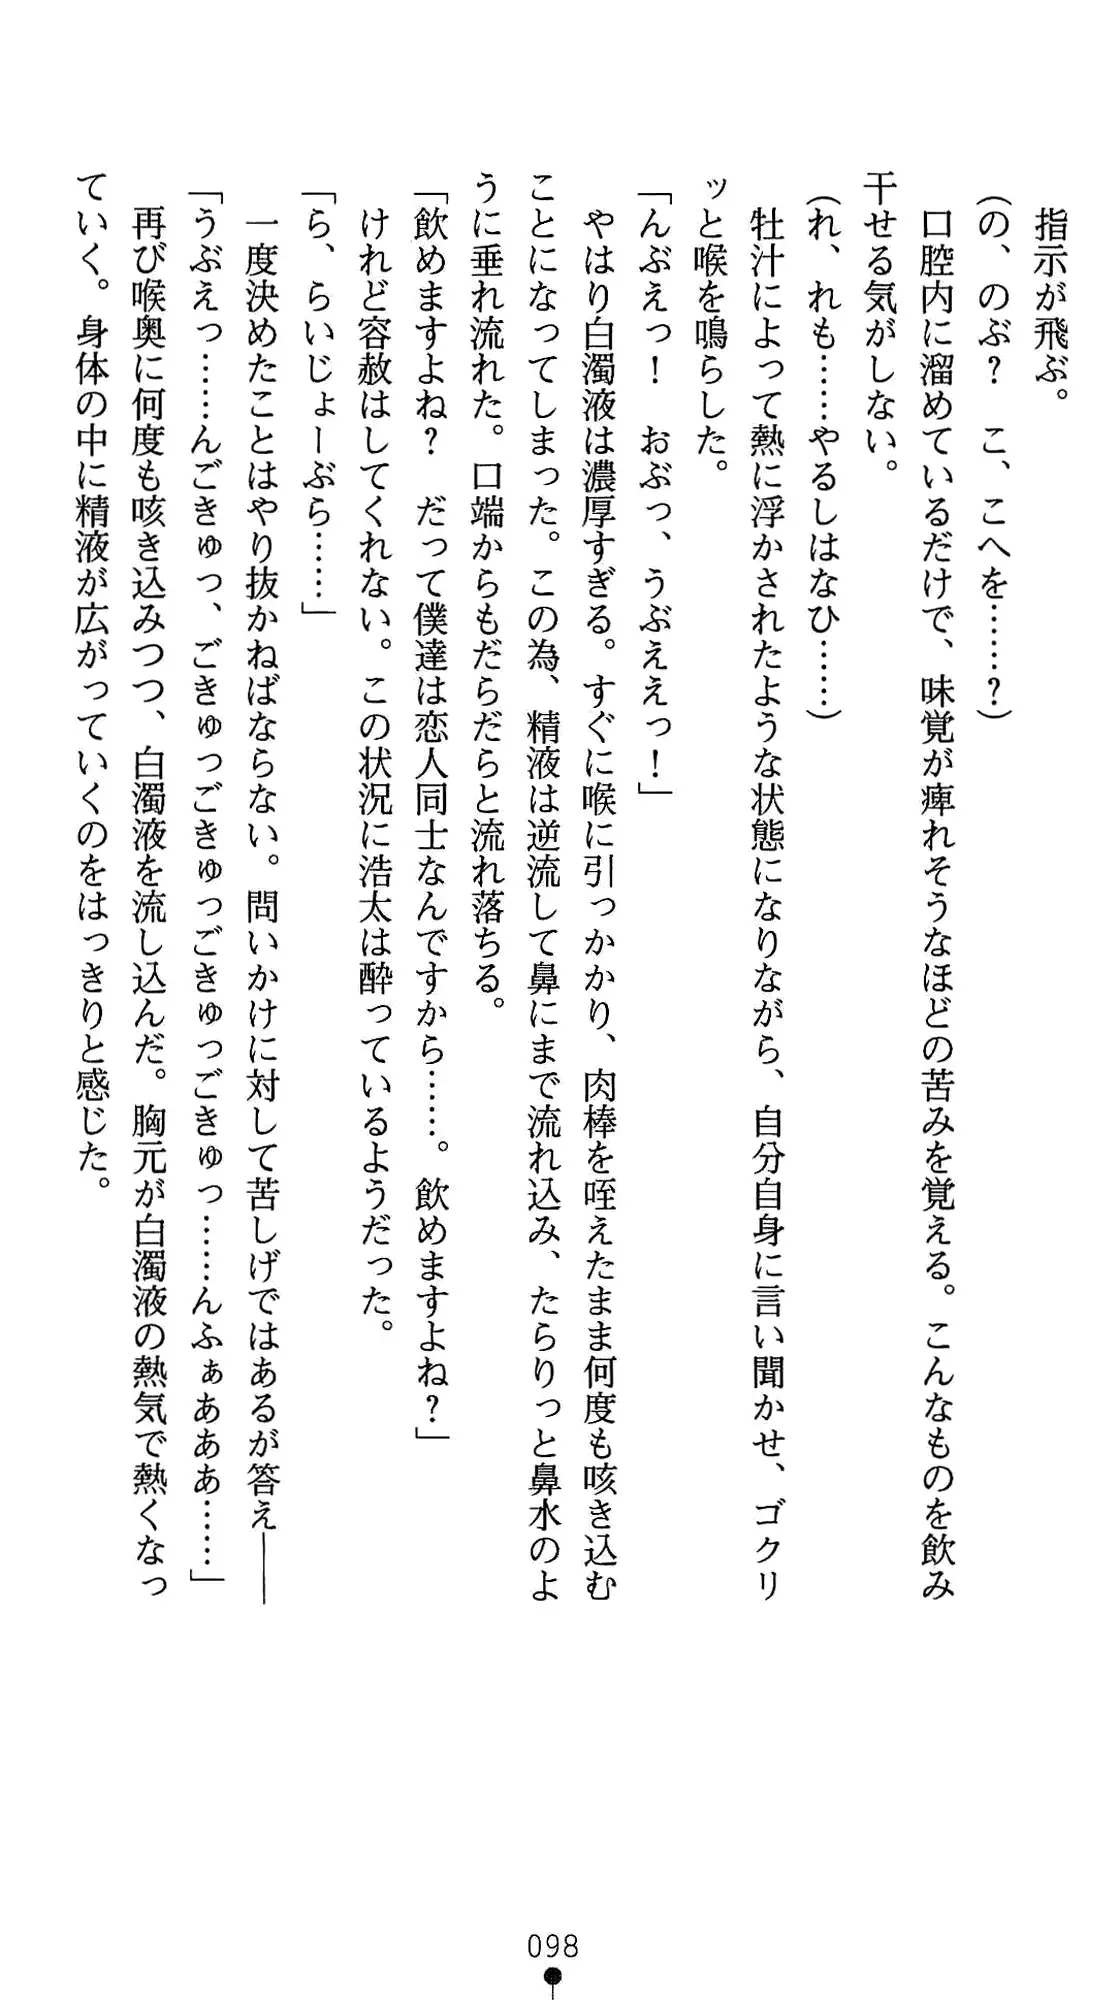 指示が飛ぶ。
(の、のぶ？　こ、こへを……？)
口腔内に溜めているだけで、味覚が痺れそうなほどの苦みを覚える。こんなものを飲み
干せる気がしない。
(れ、れも……やるしはなひ……)
牡汁によって熱に浮かされたような状態になりながら、自分自身に言い聞かせ、ゴクリ
ッと喉を鳴らした。
「んぶえっ！　おぶっ、うぶええっ！」
やはり白濁液は濃厚すぎる。すぐに喉に引っかかり、肉棒を咥えたまま何度も咳き込む
ことになってしまった。この為、精液は逆流して鼻にまで流れ込み、たらりっと鼻水のよ
うに垂れ流れた。口端からもだらだらと流れ落ちる。
「飲めますよね？　だって僕達は恋人同士なんですから……。飲めますよね？」
けれど容赦はしてくれない。この状況に浩太は酔っているようだった。
「ら、らいじょーぶら……」
一度決めたことはやり抜かねばならない。問いかけに対して苦しげではあるが答え――
「うぶえっ……んごきゅっ、ごきゅっごきゅっごきゅっごきゅっ……んふぁあああ……」
再び喉奥に何度も咳き込みつつ、白濁液を流し込んだ。胸元が白濁液の熱気で熱くなっ
ていく。身体の中に精液が広がっていくのをはっきりと感じた。
098